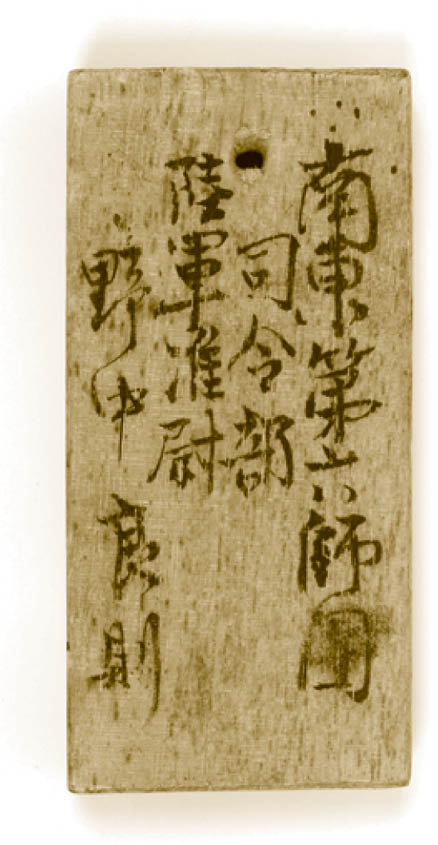 南東第六師團
司令部
陸軍准尉
野中良則